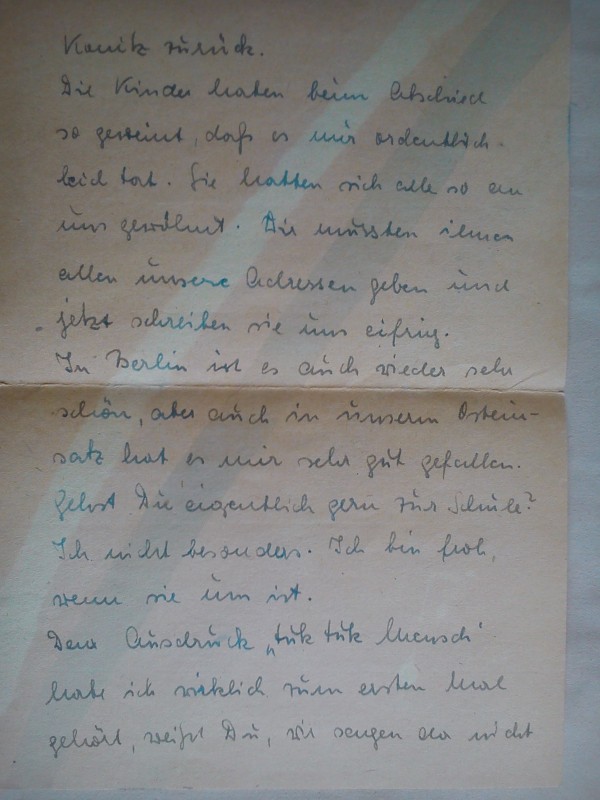 Konitz zurück.
Die Kinder haben beim Abschied
so geweint, daß es mir ordentlich
leid tat. Sie hatten sich alle so an
uns gewöhnt. Wir mussten ihnen
allen unsere Adressen geben und
jetzt schreiben sie uns eifrig.
In Berlin ist es auch wieder sehr
schön, aber auch in unserm Ostein-
satz hat es mir sehr gut gefallen.
Gehst Du eigentlich gern zur Schule?
Ich nicht besonders. Ich bin froh,
wenn sie um ist.
Den Ausdruck „tuk tuk Mensch“
habe ich wirklich zum ersten Mal
gehört, weißt Du, wir sagen da nicht